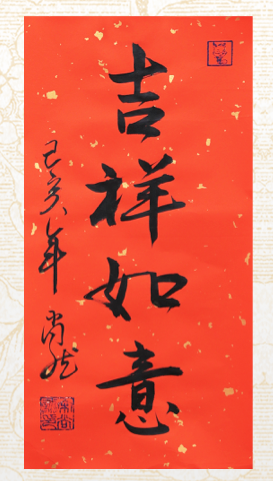 吉祥如意
己亥年 尚能